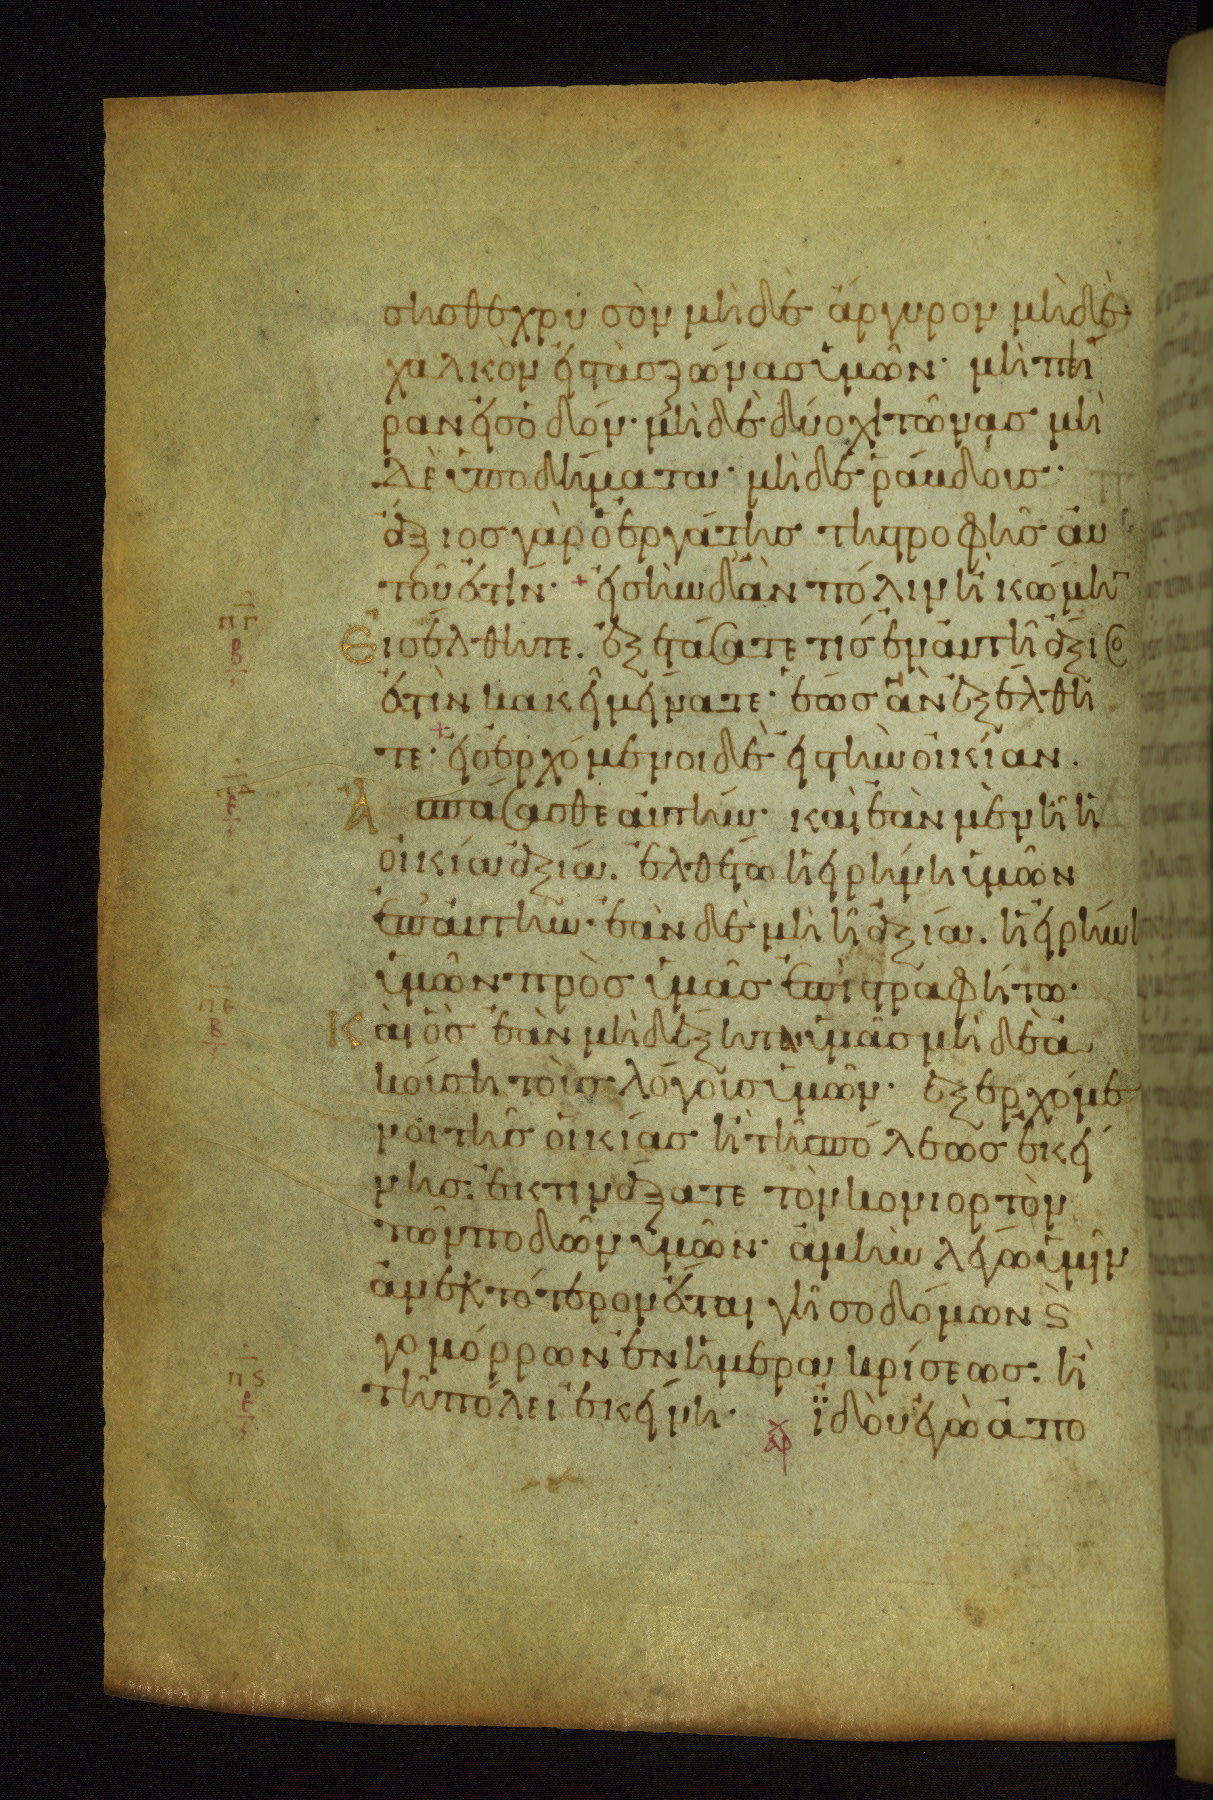 σησθε χρυσὸν μὴ δὲ ἄργυρον μὴ δὲ
χαλκὸν εἰς τὰς ζώνας ὑμῶν· μὴ πή
ραν εἰς ὁδόν· μὴ δὲ δύο χιτῶνας μὴ
δὲ ὑποδήματα· μὴ δὲ ῥάβδους·
ἄξιος γὰρ ὁ ἐργάτης τῆς τροφῆς αὐ
τοῦ ἐστίν· + εἰς ἣν δ' ἂν πόλιν ἢ κώμην
πγ
β
Εἰσέλθητε. ἐξετάσατε τίς ἐν αὐτῇ ἄξιός
ἐστιν κακεῖ μείνατε· ἕως ἂν ἐξέλθη
τε· + εἰσερχόμενοι δὲ εἰς τὴν οἰκίαν.
πδ
ε
Ἀσπάσασθε αὐτήν· καὶ ἐὰν μὲν ἦ ἡ
οἰκία ἀξία. ἐλθέτω ἡ εἰρήνη ὑμῶν
ἐπ' αὐτήν· ἐὰν δὲ μὴ ἦ ἀξία. ἡ εἰρήνη
ὑμῶν πρὸς ὑμᾶς ἐπιστραφήτω·
πε
β
Καὶ ὃς ἐὰν μὴ δέξηται ὑμᾶς μὴ δὲ ἀ
κούση τοὺς λόγους ὑμῶν· ἐξερχόμε
νοι τῆς οἰκίας ἢ τῆς πόλεως ἐκεί
νης. ἐκτινάξατε τὸν κονιορτὸν
τῶν ποδῶν ὑμῶν· ἀμὴν λέγω ὑμῖν
ἀνεκτότερον ἔσται γῆ σοδόμων ϛ
γομόρρων ἐν ἡμέρα κρίσεως. ἢ
πϛ
ε
τῆ πόλει ἐκείνη· ϊδοὺ ἐγὼ ἀπο